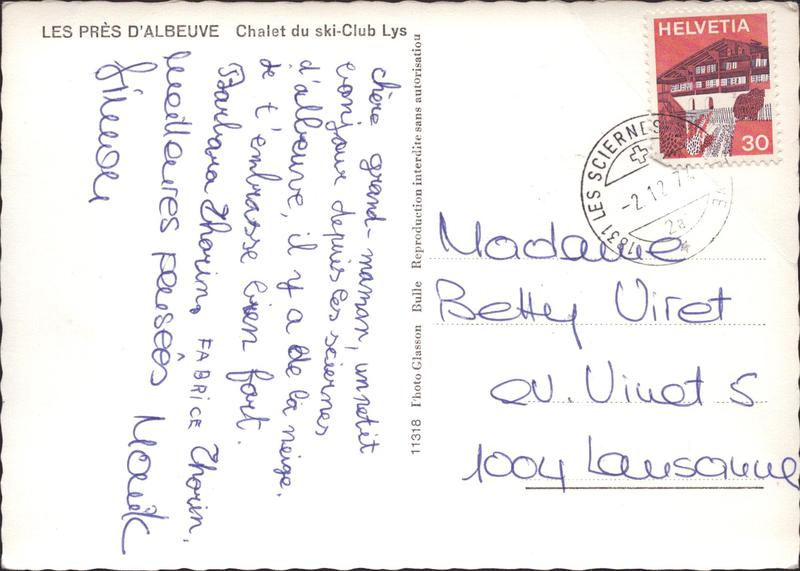 LES PRÈS D'ALBEUVE Chalet du ski-Club Lys
chère grand-maman, un petit
bonjour depuis les sciernes
d'albeuve, il y a de la neige.
Je t'embrasse bien fort.
Barbara Thorin, FABRICE Thorin.
Meilleures pensées
11318 Photo Glasson Bulle Reproduction interdite sans autorisation
HELVETIA
30
1831 LES SCIERNES
-2.12.7
2a
Madame
Betty Viret
av. Vinet 5
1004 Lausanne